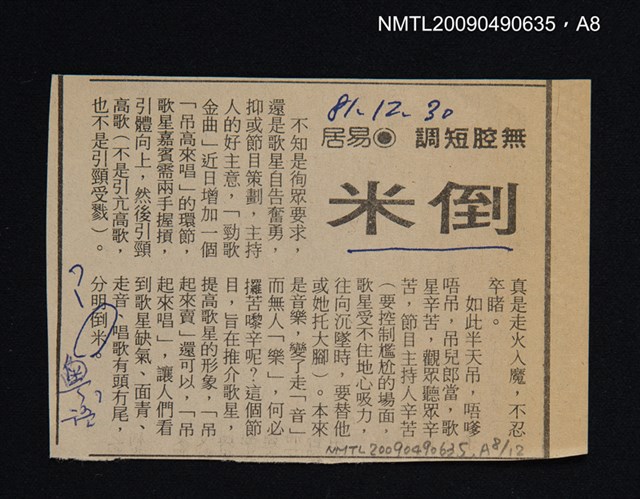 NMTL20090490635，A8
81.12.30
無腔短調 ◉ 易居
倒米
不知是徇眾要求，
還是歌星自告奮勇，
抑或節目策劃，主持
人的好主意，「勁歌
金曲」近日增加一個
「吊高來唱」的環節，
歌星嘉賓需兩手握摃，
引體向上，然後引頸
高歌（不是引亢高歌，
也不是引頸受戮）。
真是走火入魔，不忍
卒睹。
如此半天吊，唔嗲
唔吊，吊兒郎當，歌
星辛苦，觀眾聽眾辛
苦，節目主持人辛苦
（要控制尷尬的場面，
歌星受不住地心吸力，
往向沉墜時，要替他
或她托大腳）。本來
是音樂，變了走「音」
而無人「樂」，何必
攞苦嚟辛呢？這個節
目，旨在推介歌星，
提高歌星的形象，「吊
起來賣」還可以，「吊
起來唱」，讓人們看
到歌星缺氣、面青、
走音，唱歌有頭冇尾，
分明倒米。
NMTL20090490635，A8/12